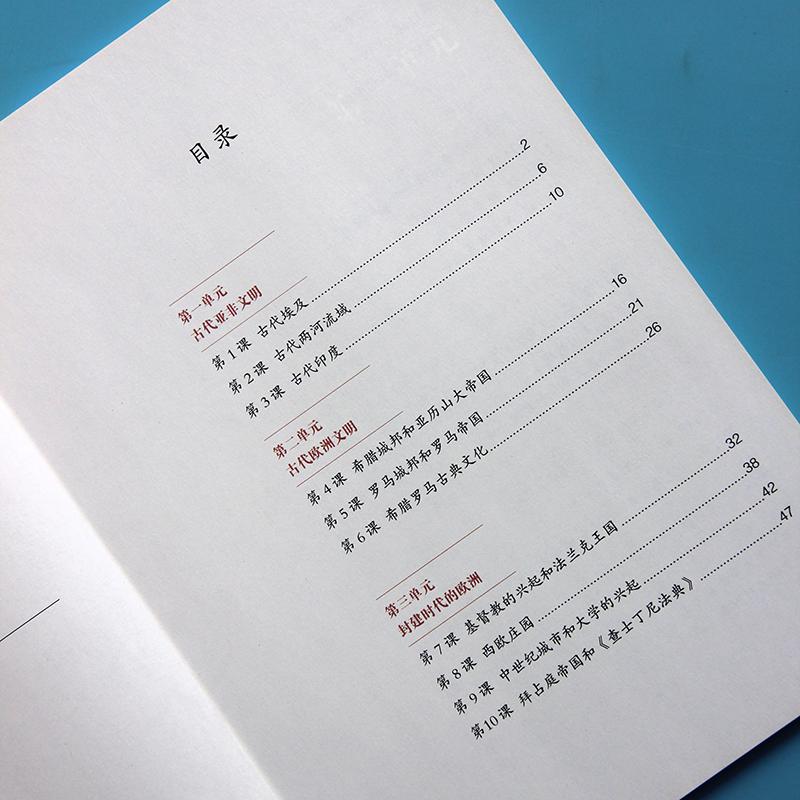 目录
第一单元
古代亚非文明
第1课 古代埃及 2
第2课 古代两河流域 6
第3课 古代印度 10
第二单元
古代欧洲文明
第4课 希腊城邦和亚历山大帝国 16
第5课 罗马城邦和罗马帝国 21
第6课 希腊罗马古典文化 26
第三单元
封建时代的欧洲
第7课 基督教的兴起和法兰克王国 32
第8课 西欧庄园 38
第9课 中世纪城市和大学的兴起 42
第10课 拜占庭帝国和《查士丁尼法典》 47